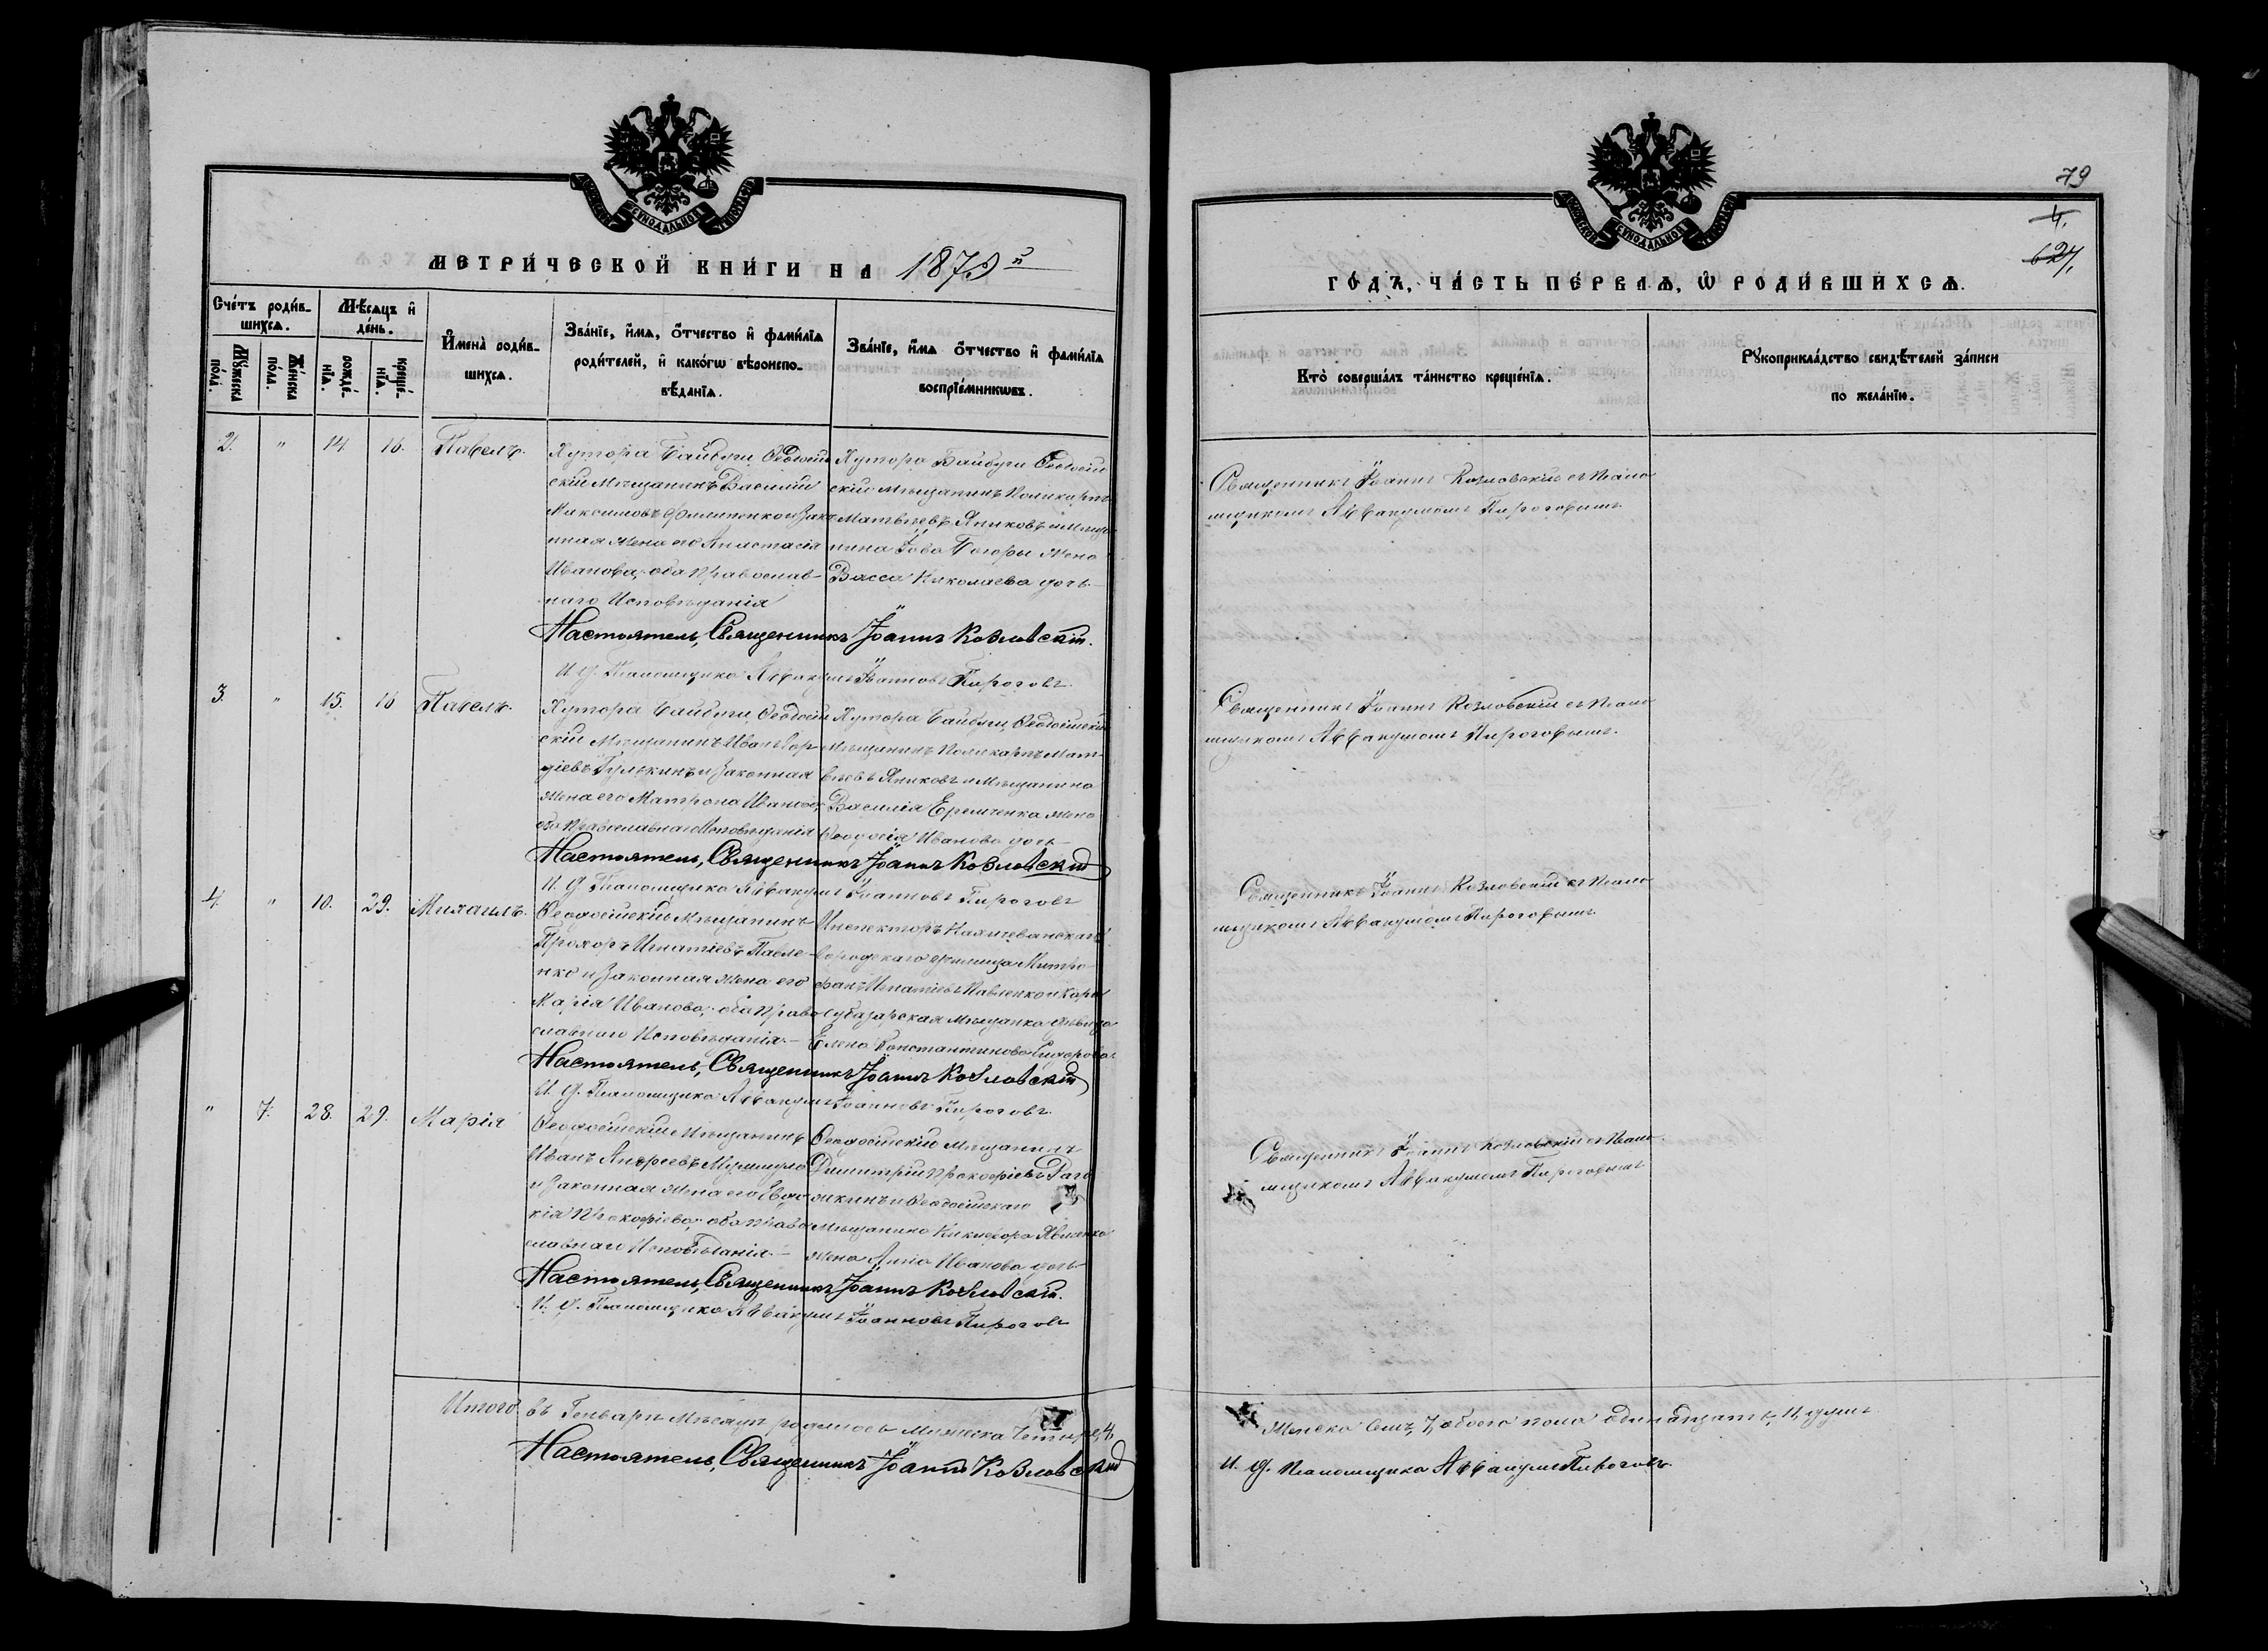 МЕТРИ́ЧЕСКОЙ КНИ́ГИ НА 1879й
Сче́тъ роди́в-
шихсѧ.
Мѣ́сѧцъ и҆
де́нь.
И҆мена̀ роди́в-
шихсѧ.
Зва́нїе, и҆́мѧ, ѻ҆́тчество и҆ фами́лїѧ
роди́телей, и҆ како́гѡ вѣроиспо-
вѣ́данїѧ.
Зва́нїе, и҆́мѧ ѻ҆́тчество и҆ фами́лїѧ
воспрїе́мникѡвъ.
Мꙋ́жеска
по́ла.
Же́нска
по́ла.
рожде́-
нїѧ.
креще́-
нїѧ.
2. " 14 16. Павелъ.
Хутора Байбуги, Ѳеодосій
скій Мѣщанинъ Василій
Максимовъ Филипенко и Зако
нная жена его Анастасія
Иванова, оба православ-
наго Исповѣданія
Хутора Байбуги Ѳеодосій
скій мѣщанинъ Поликарпъ
Матвѣевъ Яниковъ и Мѣща
нина Іова жена
Васса Николаева дочь.
Настоятель, Священникъ Іоаннъ Козловскій.
И. д. Псаломщика Аввакумъ Іоанновъ Пироговъ
3. " 15. 16 Павелъ.
Хутора Байбуги, Ѳеодосій
скій Мѣщанинъ Иванъ Гор
діевъ Гулькинъ и Законная
жена его Матрона Иванова,
оба Православнаго Исповѣданія
Хутора Байбуги, Ѳеодосійскій
Мѣщанинъ Поликарпъ Мат-
вѣевъ Яниковъ и Мѣщанина
Василія Еремченка жена
Ѳеодосія Иванова дочь
Настоятель, Священникъ Іоаннъ Козловскій
И. д. Псаломщика Аввакумъ Іоанновъ Пироговъ
4. " 10. 29. Михаилъ.
Ѳеодосійскій Мѣщанинъ
Прохоръ Игнатіевъ Павле-
нко и Законная жена его
Марія Иванова, оба Право
славнаго Исповѣданія.
Инспекторъ Нахичеванскаго
городскаго училища Митро
фанъ Игнатіевъ Павленко и Кара
субазарская мѣщанка дѣвица
Елена Константинова
Настоятель, Священникъ Іоаннъ Козловскій
И. д. Псаломщика Аввакумъ Іоанновъ Пироговъ.
" 7. 28. 29. Марія
Ѳеодосійскій Мѣщанинъ
Иванъ Андреевъ
и Законная жена его Евдо
кія Прокофіева, оба право
славнаго Исповѣданія.
Ѳеодосійскій Мѣщанинъ
Димитрій Прокофіевъ
и Ѳеодосійскаго
Мѣщанина Никифора
жена Анна Иванова дочь
Настоятель, Священникъ Іоаннъ Козловскій.
И. д. Псаломщика Аввакумъ Іоанновъ Пироговъ
Итого въ Генварѣ Мѣсяцѣ родилось Мужеска четыре, 4
Настоятель, Священникъ Іоаннъ Козловскій
79
4.
627.
ГО́ДЪ, ЧА́СТЬ ПЕ́РВАѦ, Ѡ҆ РОДИ́ВШИХСѦ.
Кто̀ соверша́лъ та́инство креще́нїѧ.
Рꙋкоприкла́дство свидѣ́телей за́писи
по жела́нїю.
Священникъ Іоаннъ Козловскій съ Псало
мщикомъ Аввакумомъ Пироговымъ.
Священникъ Іоаннъ Козловскій съ Псало
мщикомъ Аввакумомъ Пироговымъ.
Священникъ Іоаннъ Козловскій съ Псало
мщикомъ Аввакумомъ Пироговымъ
Священникъ Іоаннъ Козловскій съ Псало-
мщикомъ Аввакумомъ Пироговымъ
Женска семь, 7, обоего пола одинадцать, 11, душъ
И. д. Псаломщика Аввакумъ Пироговъ.